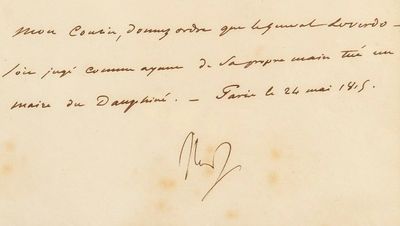 Mon Cousin, donnez ordre que le general Loverdo
soit jugé comme ayant de sa propre main tué un
maire du Dauphiné. — Paris le 24 mai 1815.